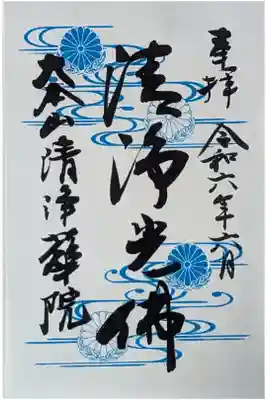 奉拝
令和六年六月
清浄光佛
大本山清浄華院